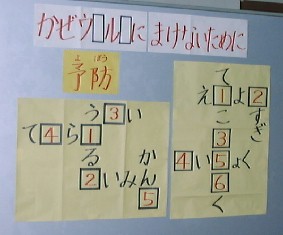 かぜウ□ル□に まけないために
よぼう
予防
う3い
て4ら1
る か
2いみん
5
て
え1よ2
こ すぎ
3
4い5よく
6
く